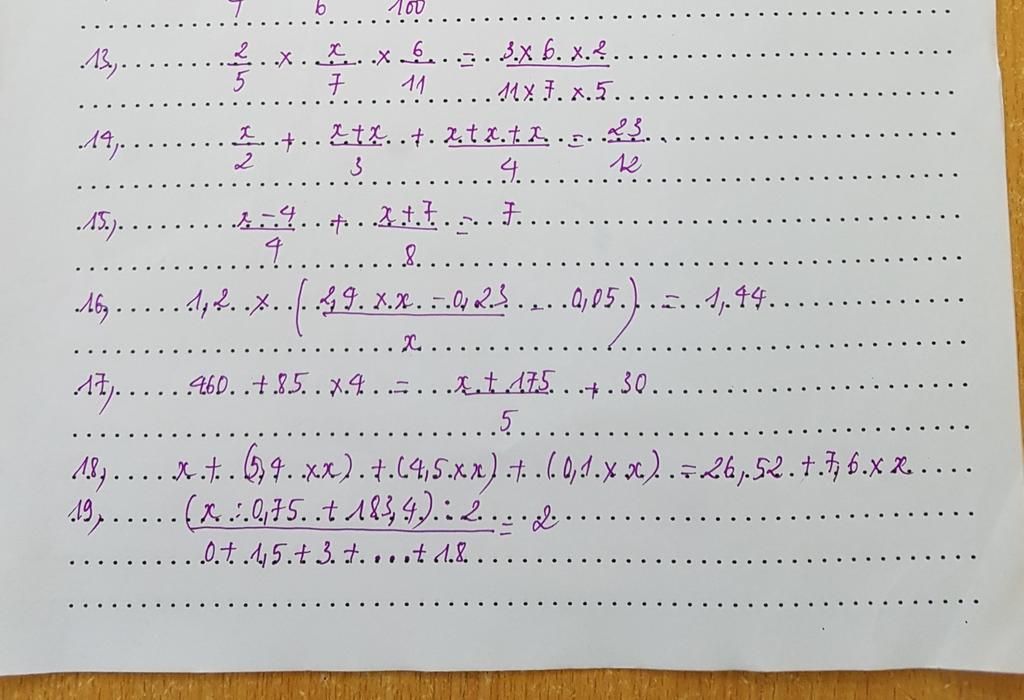 7 6 100
13, 2/5 × x/7 × 6/11 = 3 × 6 × 2 / 11 × 7 × 5
14, x/2 + x + x / 3 + x + x + x / 4 = 23/12
15, x - 4 / 4 + x + 7 / 8 = 7
16, 1,2 × ( 2,4 × x - 0,23 / x - 0,05 ) = 1,44
17, 460 + 85 × 4 = x + 175 / 5 + 30
18, x + (5,4 × x) + (4,5 × x) + (0,1 × x) = 26,52 + 7,6 × x
19, (x : 0,75 + 183,4) : 2 / 0 + 1,5 + 3 + ... + 18 = 2